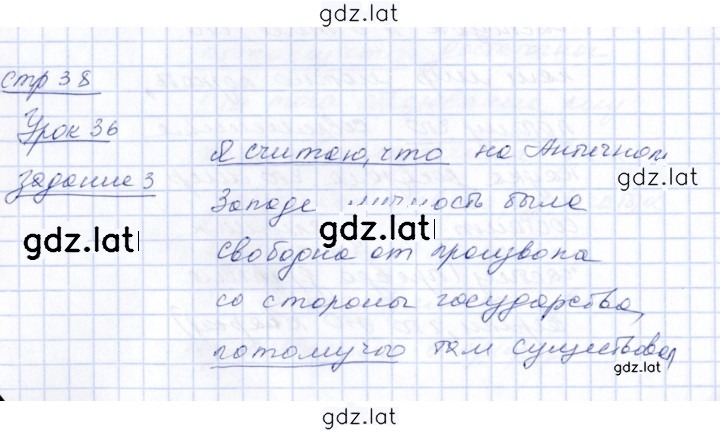 gdz.lat
стр 38
Урок 36
задание 3
Я считаю, что на Античном
gdz.lat
Западе личность была
gdz.lat
gdz.lat
свободна от произвола
со стороны государства,
потомучто там существовал
gdz.lat
gdz.lat